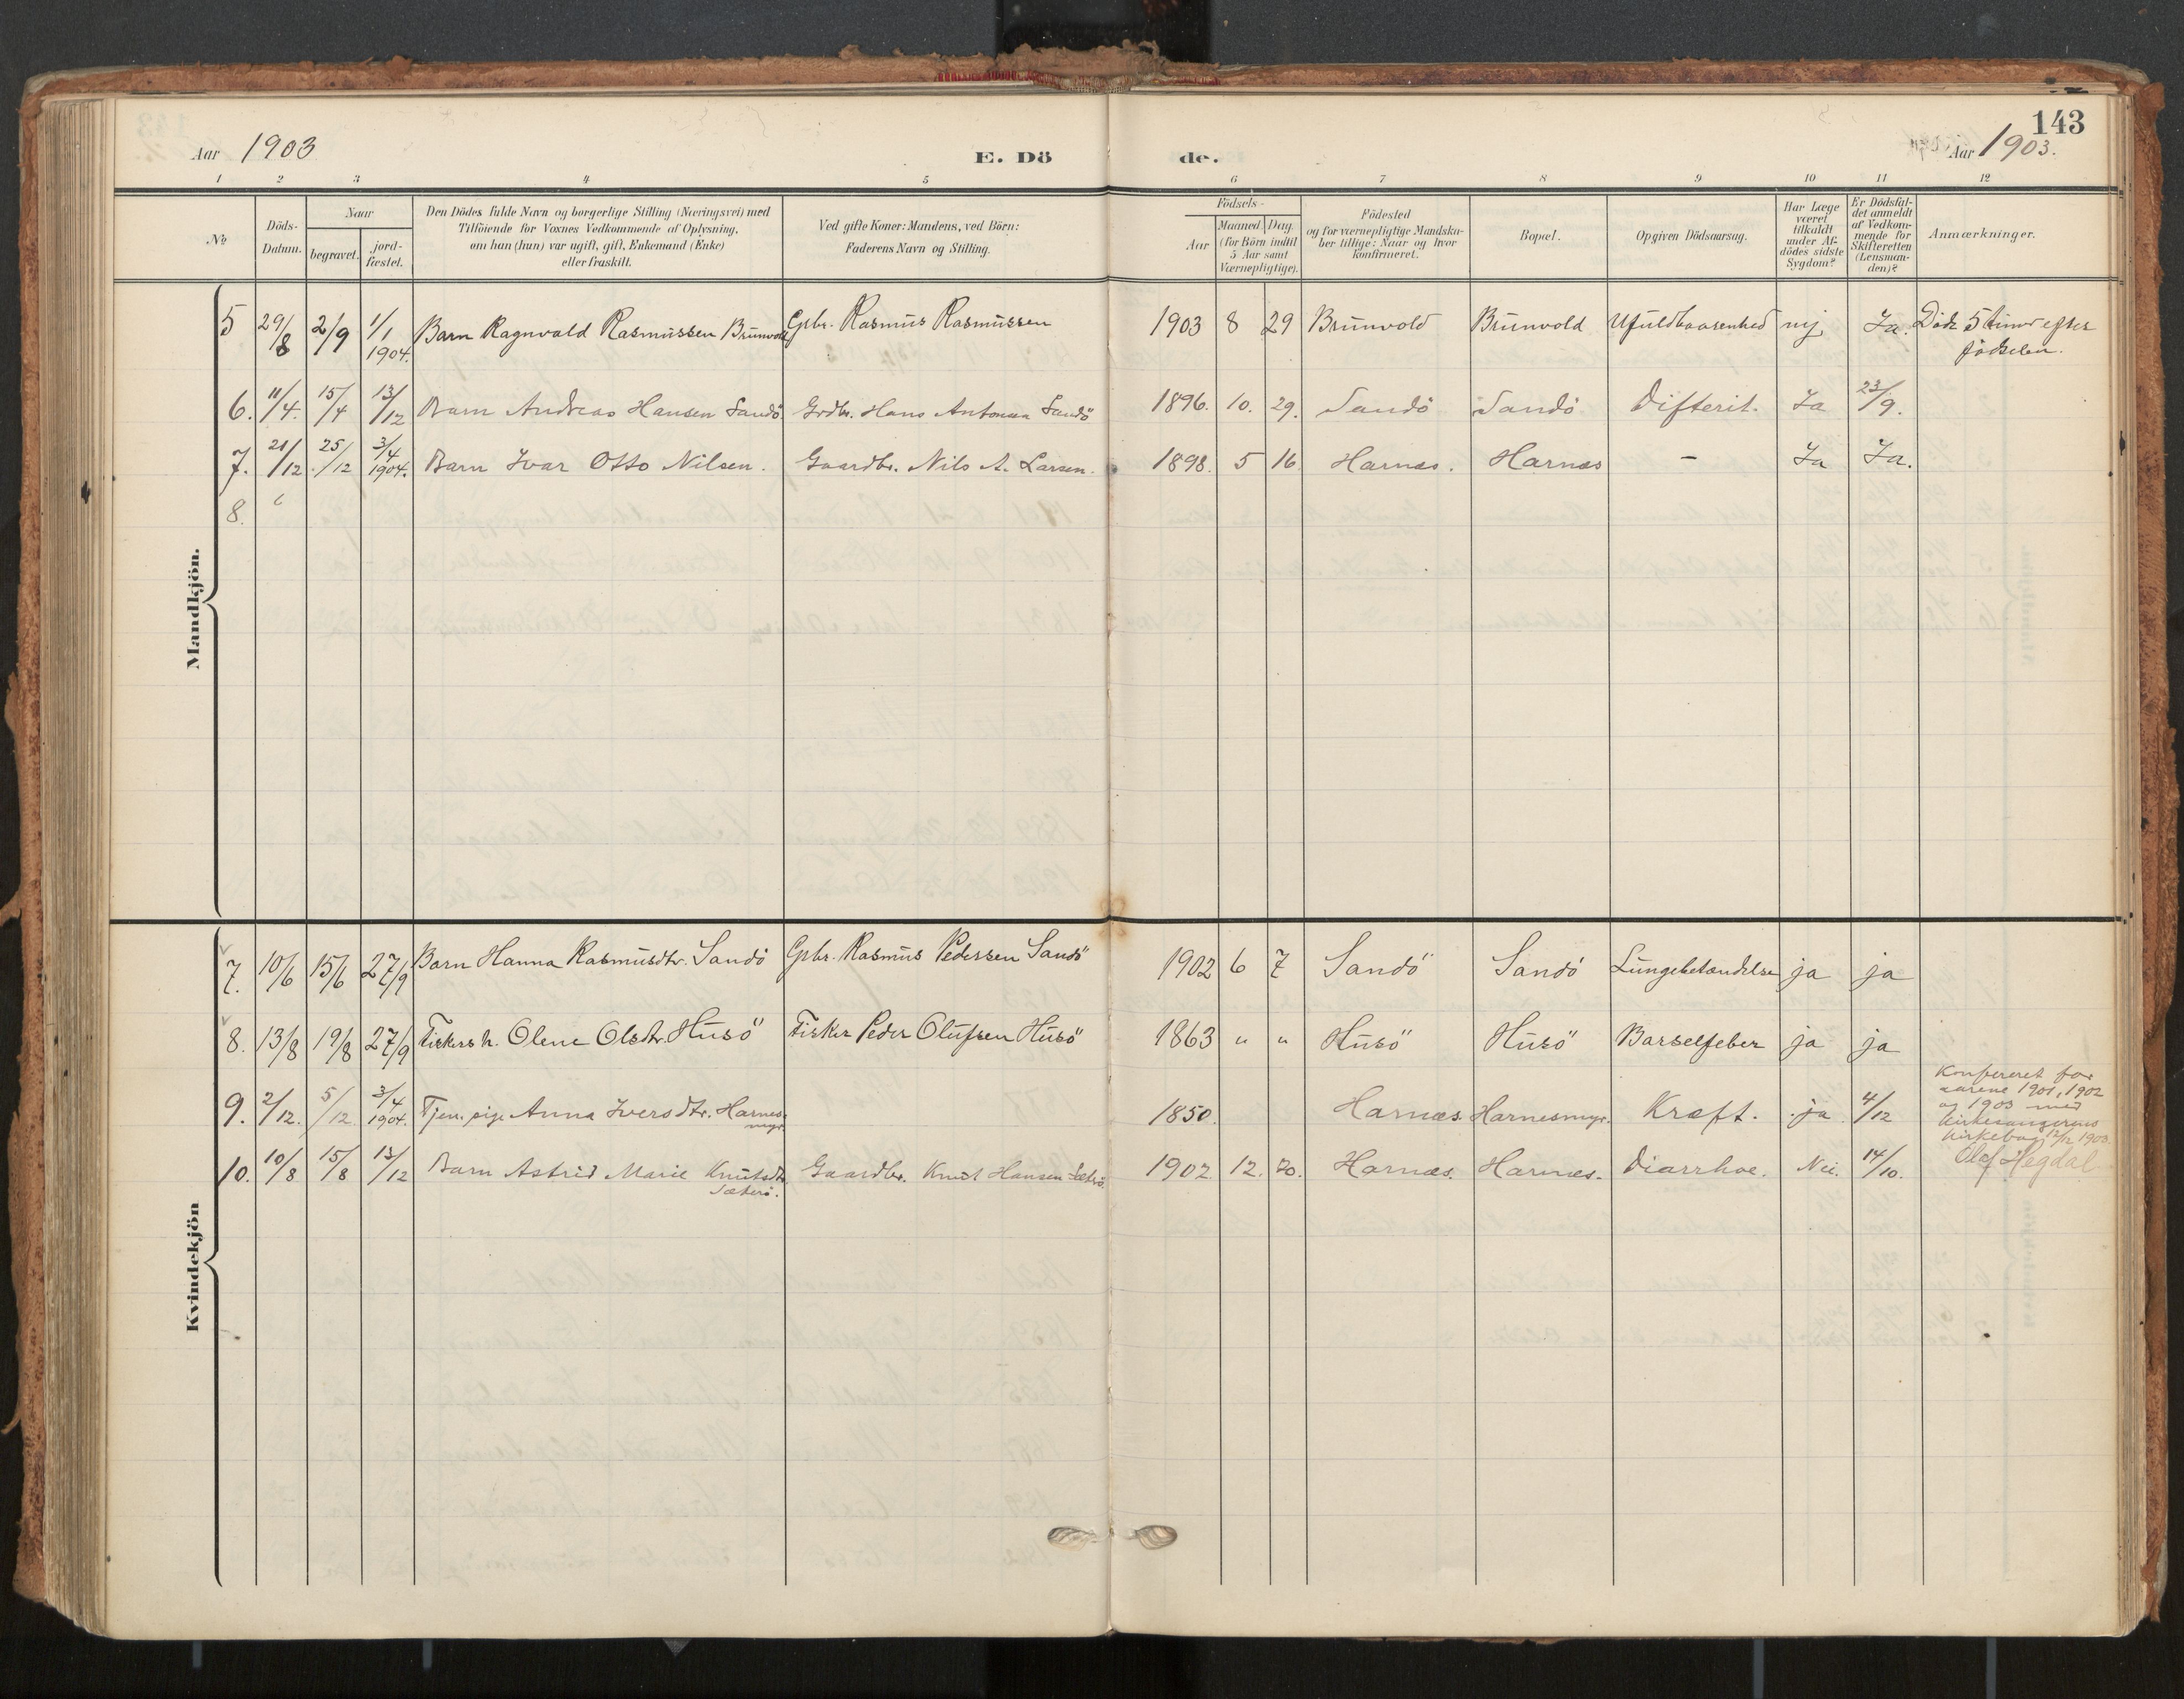 143
Aar 1903
E. Döde.
Aar 1903.
1 2 3 4 5 6 7 8 9 10 11 12
No
Döds-
Datum.
Naar
begravet.
jord-
fæstet.
Den Dödes fulde Navn og borgerlige Stilling (Næringsvei) med
Tilföiende for Voxnes Vedkommende af Oplysning,
om han (hun) var ugift, gift, Enkemand (Enke)
eller fraskilt.
Ved gifte Koner: Mandens, ved Börn:
Faderens Navn og Stilling.
Födsels-
Aar
Maaned. Dag.
(for Börn indtil
5 Aar samt
Værnepligtige).
Födested
og for værnepligtige Mandska-
ber tillige: Naar og hvor
konfirmeret.
Bopæl.
Opgiven Dödsaarsag.
Har Læge
været
tilkaldt
under Af-
dödes sidste
Sygdom?
Er Dödsfal-
det anmeldt
af Vedkom-
mende for
Skifteretten
(Lensman-
den)?
Anmærkninger.
Mandkjön.
5 29/8 2/9 1/1 1904. Barn Ragnvald Rasmussen Brunvold Gbr. Rasmus Rasmussen 1903 8 29 Brunvold Brunvold Ufuldbaarenhed nej Ja. Döde 5 timer efter
födselen.
6. 11/4. 15/4 13/12 Barn Andreas Hansen Sandö Grdbr. Hans Antonsen Sandö 1896. 10. 29. Sandö Sandö Difterit. Ja 23/9.
7. 21/12 25/12 3/4 1904. Barn Ivar Otto Nilsen. Gaardbr. Nils A. Larsen. 1898. 5 16. Harnæs. Harnæs - Ja Ja.
8.
Kvindekjön
7. 10/6 15/6 27/9 Barn Hanna Rasmusdtr. Sandö Gbr. Rasmus Pedersen Sandö 1902 6 7 Sandö Sandö Lungebetændelse ja ja
8. 13/8 19/8 27/9 Fiskers h. Olene Olsdtr. Husö Fisker Peder Olufsen Husö 1863 " " Husö Husö Barselfeber ja ja
9. 2/12. 5/12 3/4 1904. Tjen. pige Anna Iversdtr. Harnes-
myr. 1850. Harnæs. Harnesmyr. Kræft. ja 4/12
Konfereret for
aarene 1901, 1902
og 1903 med
kirkesangerens
kirkebog 12/12 1903.
Olaf Hegdal
10. 10/8 15/8 13/12 Barn Astrid Marie Knutsdtr.
Sæterö. Gaardbr. Knut Hansen Sæterö. 1902. 12. 20. Harnæs. Harnæs. Diarrhoe. Nei. 14/10.